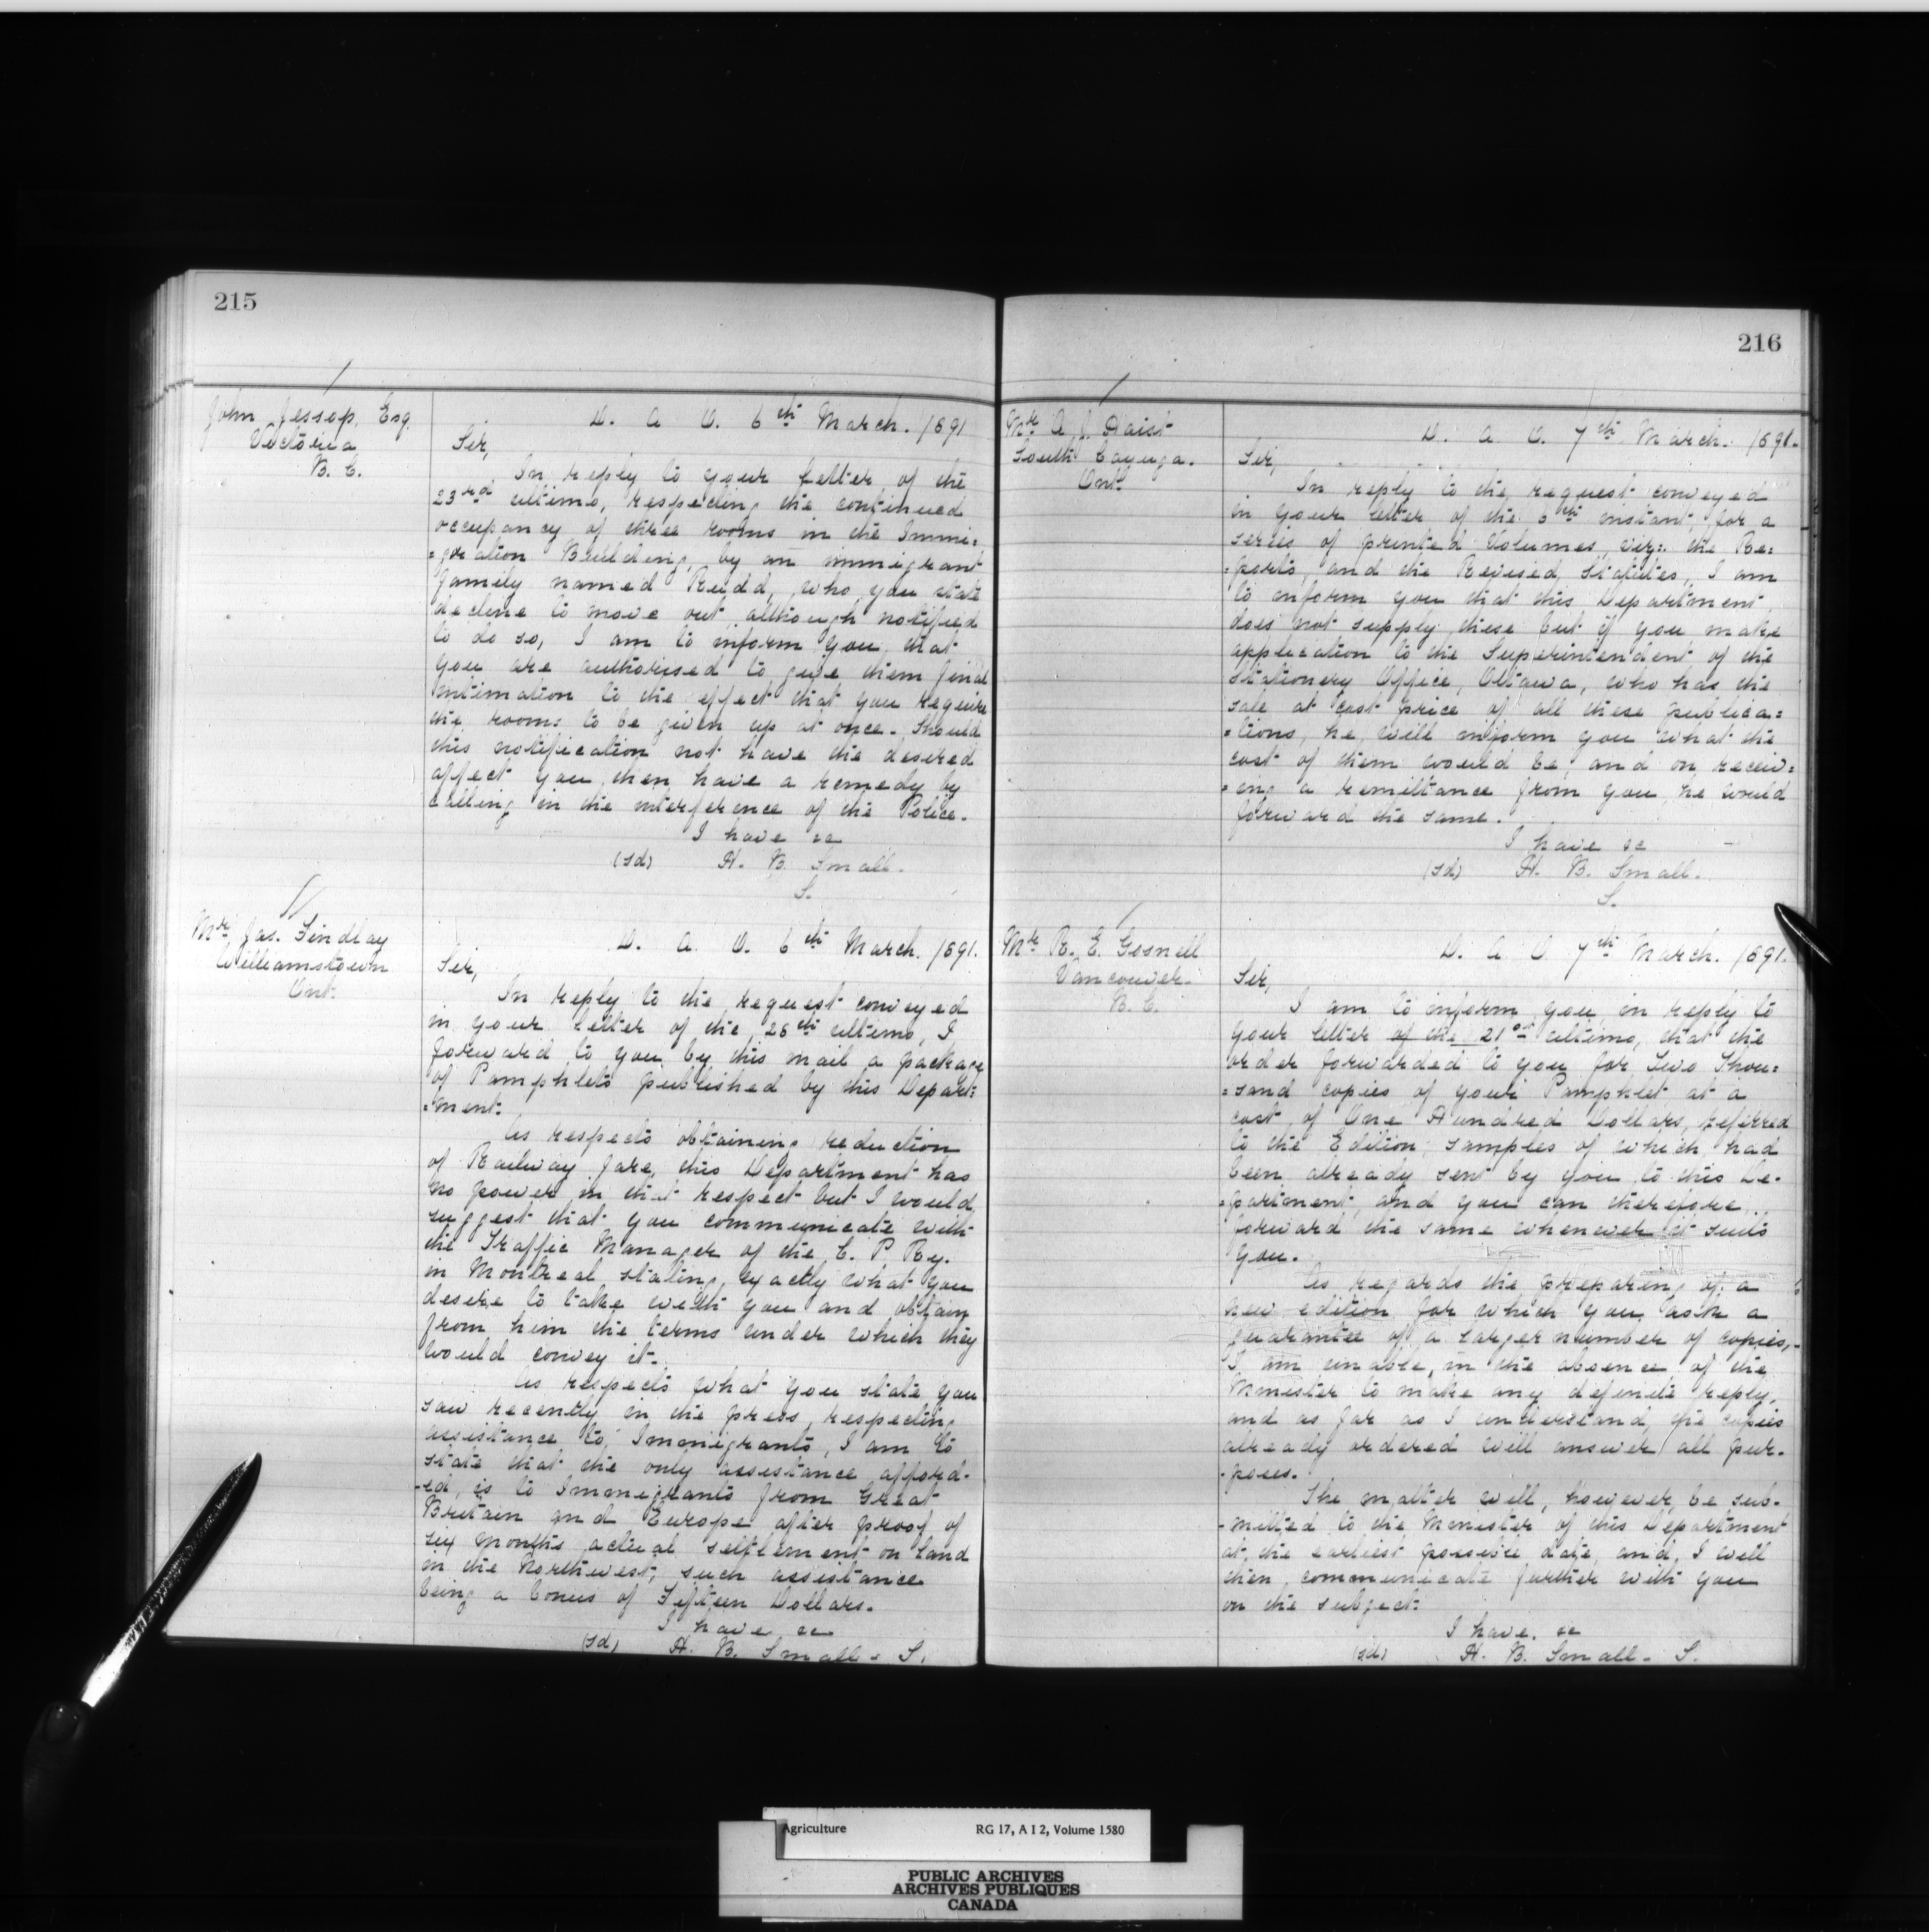 215
John Jessop, Esq.
Victoria
B. C.
D. A. O. 6th March. 1891
Sir,
In reply to your letter of the
23rd ultimo, respecting the continued
occupancy of three rooms in the Immi=
=gration Building, by an immigrant
family named Rudd, who you state
decline to move out, although notified
to do so, I am to inform you, that
you are authorised to give them final
intimation to the effect that you require
the rooms to be given up at once. Should
this notification not have the desired
affect you then have a remedy by
calling in the interference of the Police.
I have &c
(sd) H. B. Small.
S.
Mr Jas. Findlay
Williamstown
Ont.
D. A. O. 6th March. 1891.
Sir,
In reply to the request conveyed
in your letter of the 28th ultimo, I
forward to you by this mail a package
of Pamphlets published by this Depart=
=ment.
As respects obtaining reduction
of Railway fare, this Department has
no power in that respect but I would
suggest that you communicate with
the Traffic Manager of the C. P Ry.
in Montreal stating, exactly what you
desire to take with you and obtain
from him the terms under which they
would convey it.
As respects what you state you
saw recently in the press, respecting
assistance to Immigrants, I am to
state that the only assistance afford-
-ed, is to Immigrants from Great
Britain and Europe after proof of
six months actual settlement on Land
in the Northwest, such assistance
being a bonus of Fifteen Dollars.
I have &c
(sd) H. B. Small - S.
216
Mr A. J. Haist
South Cayuga.
Ont.
D. A. O. 7th March. 1891.
Sir,
In reply to the request conveyed
in your letter of the 6th instant, for a
series of printed Volumes, viz:. the Re=
=ports, and the Revised Statutes, I am
to inform you that this Department
does not supply these but if you make
application to the Superintendent of the
Stationery Office, Ottawa, who has the
sale at cost price of all these publica=
=tions, he will inform you what the
cost of them would be, and on receiv=
=ing a remittance from you, he would
forward the same.
I have &c
(sd) H. B. Small.
S.
Mr R. E. Gosnell
Vancouver.
B. C.
D. A. O 7th March. 1891.
Sir,
I am to inform you in reply to
your letter of the 21st ultimo, that the
order forwarded to you for Two Thou=
=sand copies of your Pamphlet at a
cost of One Hundred Dollars, referred
to the Edition, samples of which had
been already sent by you to this De-
=partment, and you can therefore
forward the same whenever it suits
you.
As regards the preparing of a
new edition for which you ask a
guarantee of a larger number of copies,-
I am unable, in the absence of the
Minister to make any definite reply,
and as far as I understand, the copies
already ordered will answer all pur-
-poses.
The matter will, however, be sub-
-mitted to the Minister of this Department
at the earliest possible date, and, I will
then communicate further with you
on the subject.
I have. &c
(sd) H. B. Small - S.
Agriculture RG 17, A I 2, Volume 1580
PUBLIC ARCHIVES
ARCHIVES PUBLIQUES
CANADA